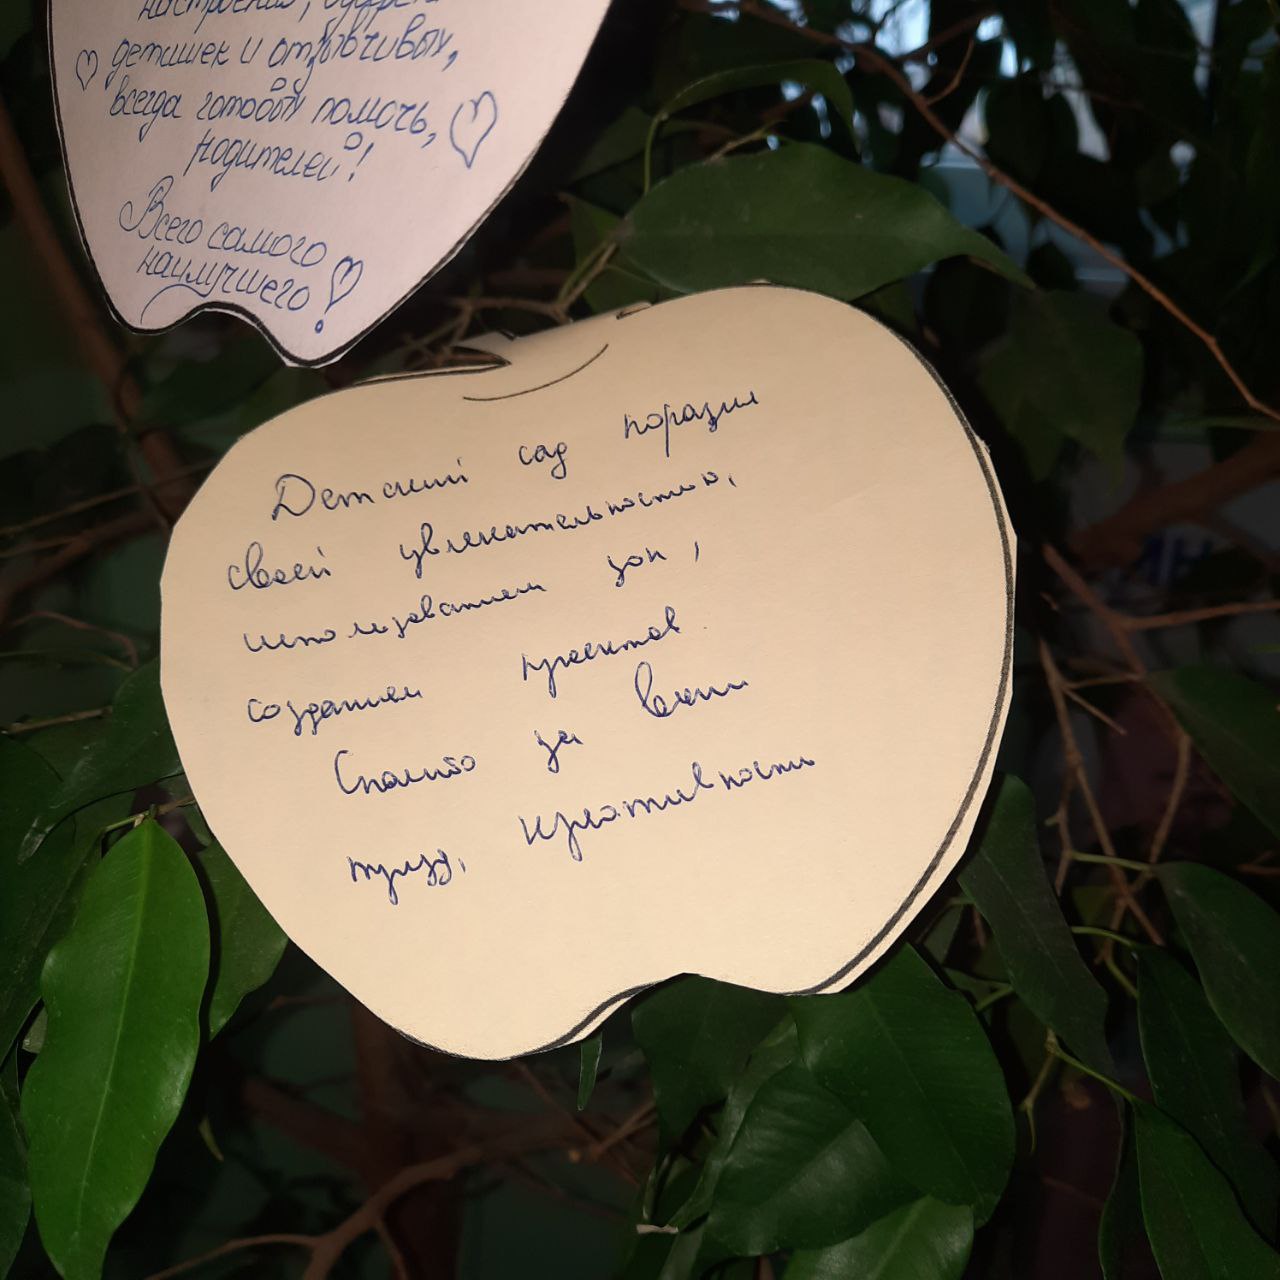 настроения,
детишек и отзывчивых,
всегда готовых помочь,
родителей!
Всего самого
наилучшего!
Детский сад поразил
своей увлекательностью,
использованием зон,
созданием проектов
Спасибо за ваши
труд, креативность